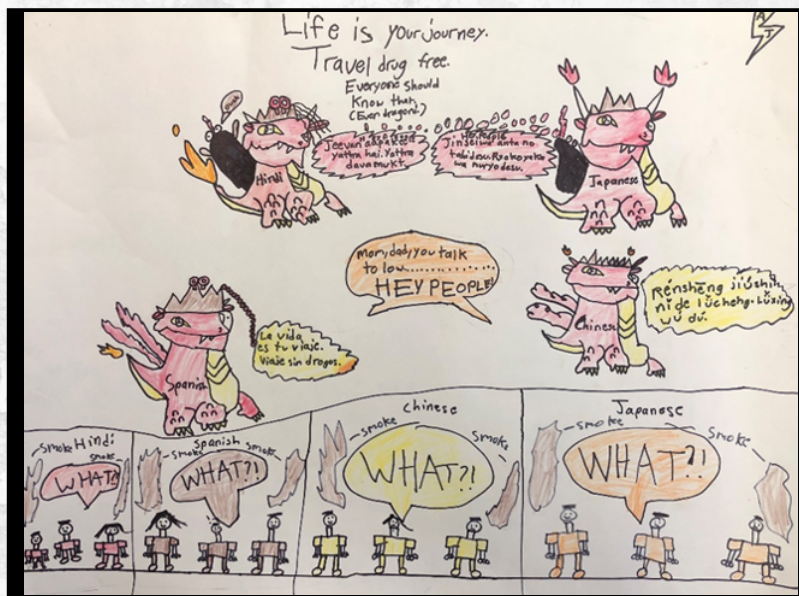 Life is your journey.
Travel drug free.
Everyone should
Know that,
(Even dragons)
A J
Hindi
Jeevan aapakee
yattra hai. Yattra
davamukt.
Hey People
Jinsei wa anta no
tabidesu. Ryokoyaku
wa muryodesu.
Japanese
Mom, dad, you talk
to low..............
HEY PEOPLE!
Chinese
Rénshēng jiùshì
nǐ de lǚchéng. Lǚxíng
wú dú.
Spanish
La vida
es tu viaje.
Viaje sin drogas.
Hindi
smoke
smoke
WHAT?!
spanish
smoke
smoke
WHAT?!
chinese
smoke
smoke
WHAT?!
Japanese
smoke
smoke
WHAT?!